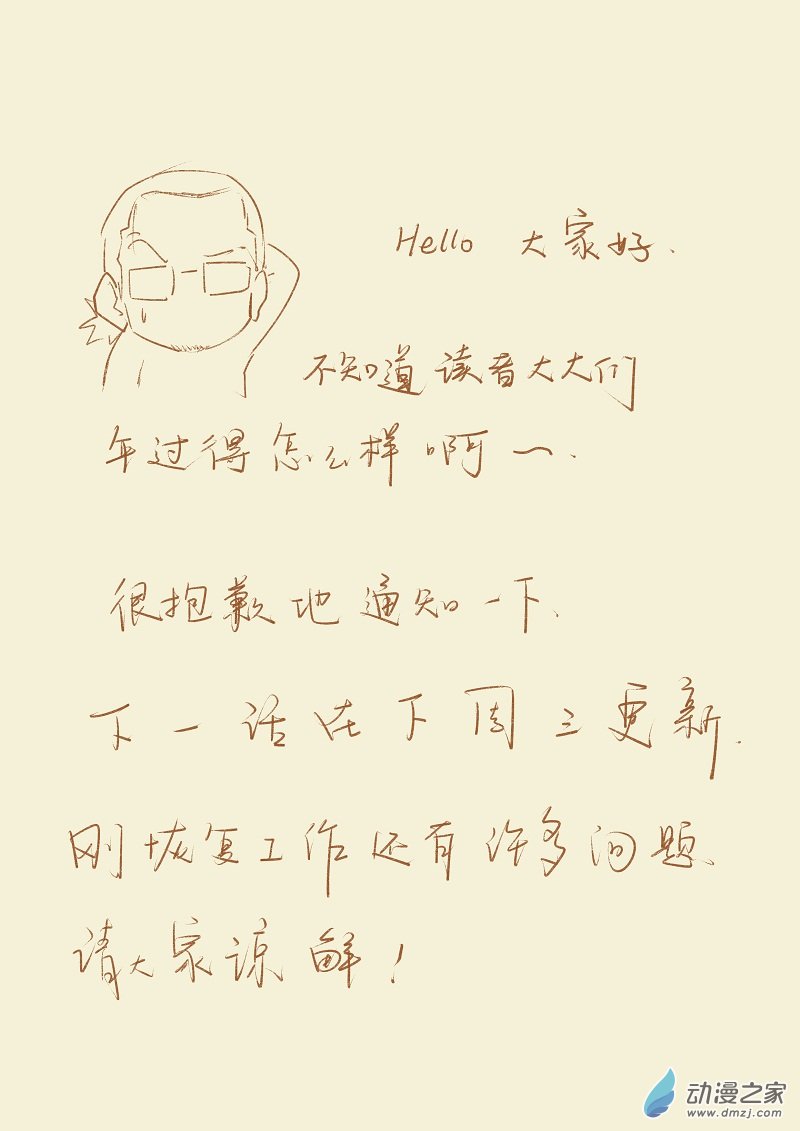 Hello 大家好.
不知道读者大大们
年过得怎么样啊～.
很抱歉地通知一下.
下一话在下周三更新.
刚恢复工作还有许多问题.
请大家谅解!
动漫之家
www.dmzj.com